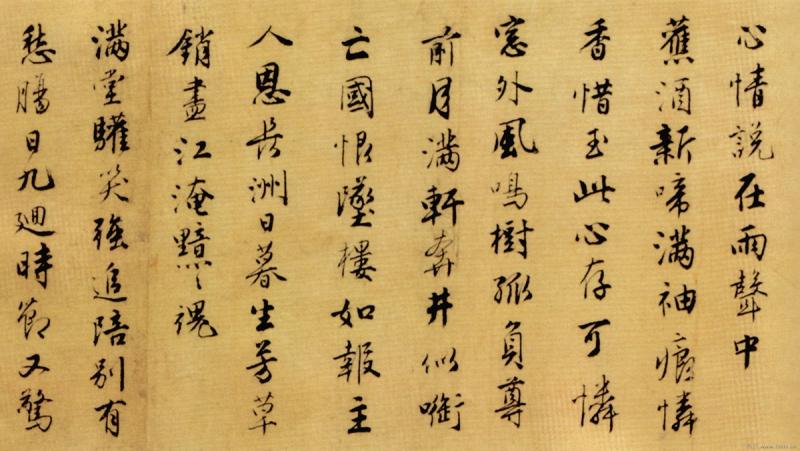 心情說在雨聲中
舊酒新啼滿袖痕憐
香惜玉此心存可憐
窓外風鳴樹孤負尊
前月滿軒奔井似啣
亡國恨墜樓如報主
人恩長洲日暮生芳草
銷盡江淹黯〻魂
滿堂驩笑強追陪別有
愁腸日九迴時節又驚